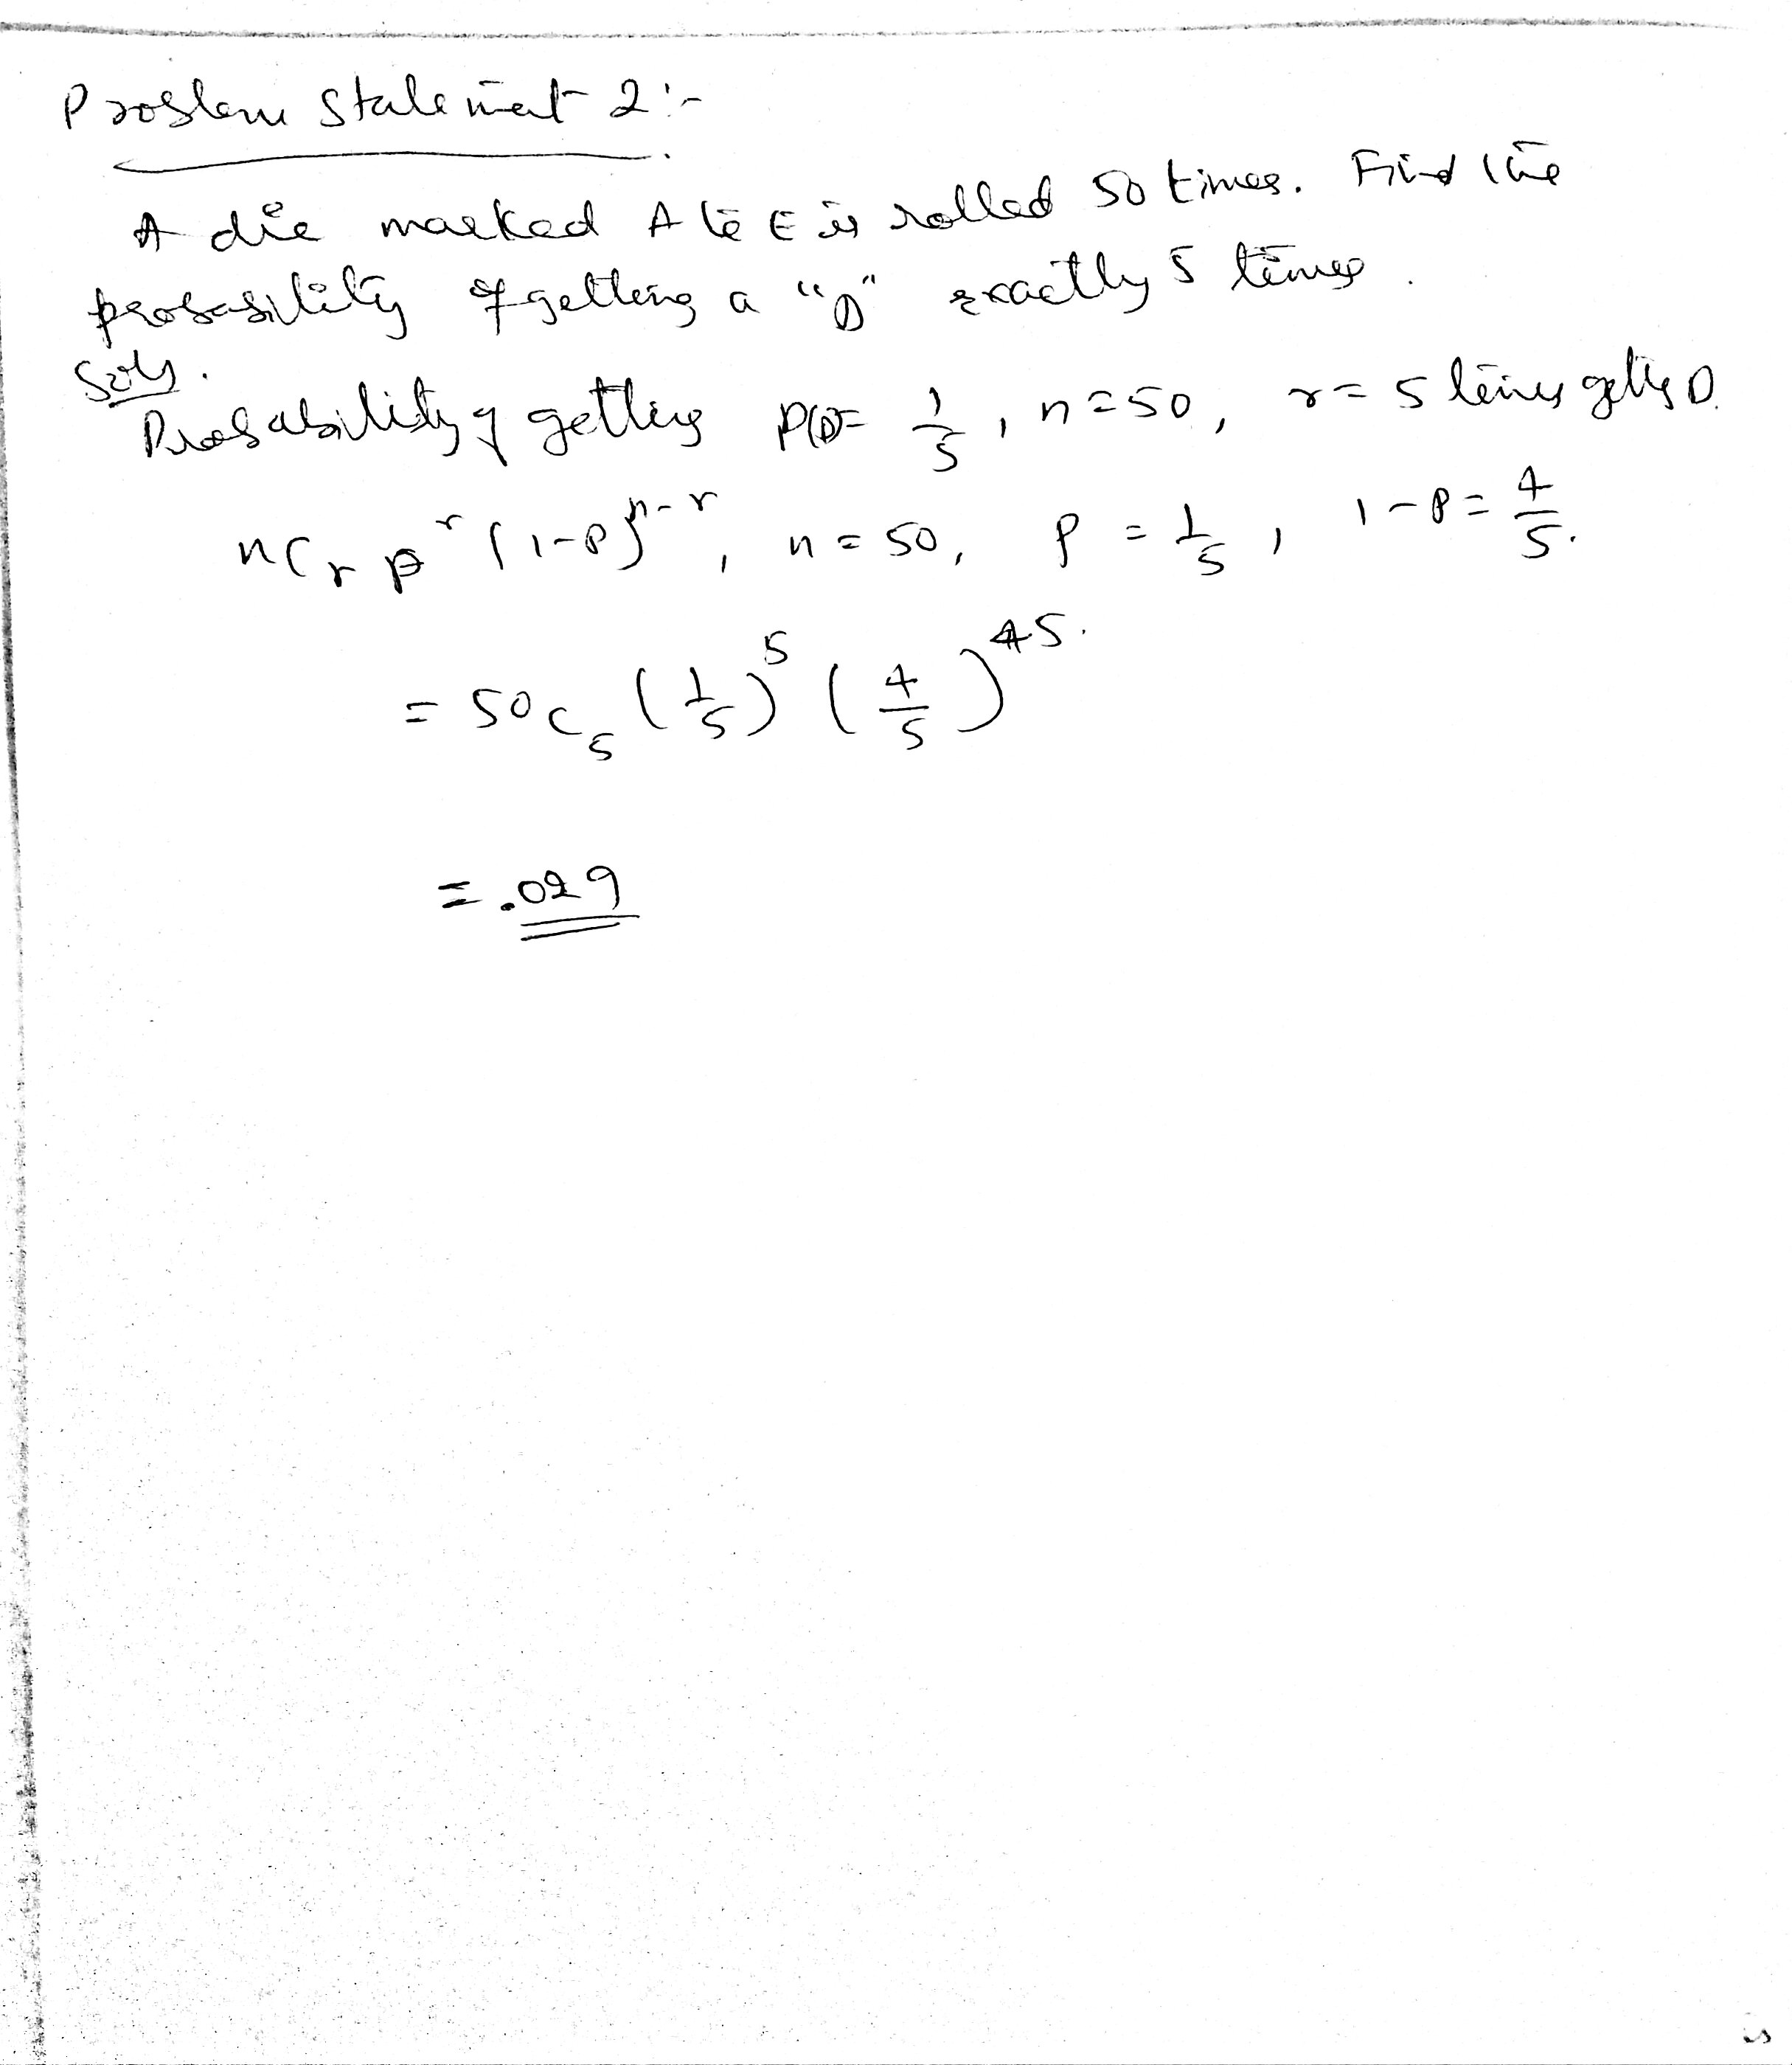 Problem Statement 2:-
A die marked A to E is rolled 50 times. Find the
probability of getting a "D" exactly 5 times.
Soln.
Probability of getting P(D)= 1/5, n=50, r=5 times getting D.
nCr p^r (1-p)^n-r, n=50, p=1/5, 1-p=4/5.
= 50C5 (1/5)^5 (4/5)^45.
= .029